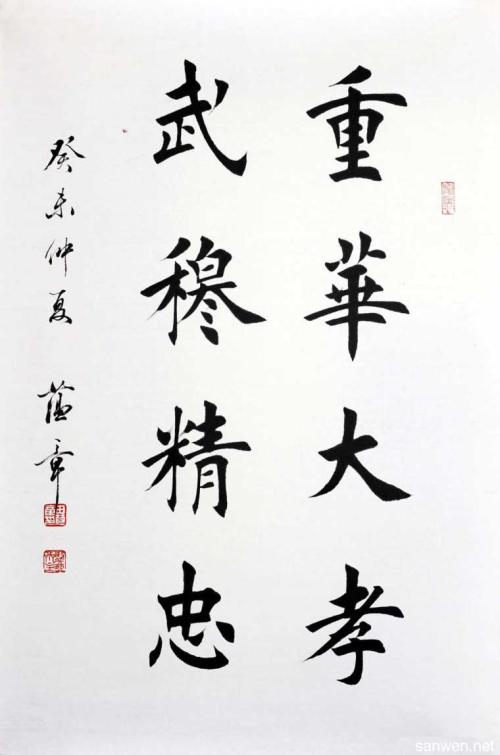 重華大孝
武穆精忠
癸未仲夏 蕴章
sanwen.net